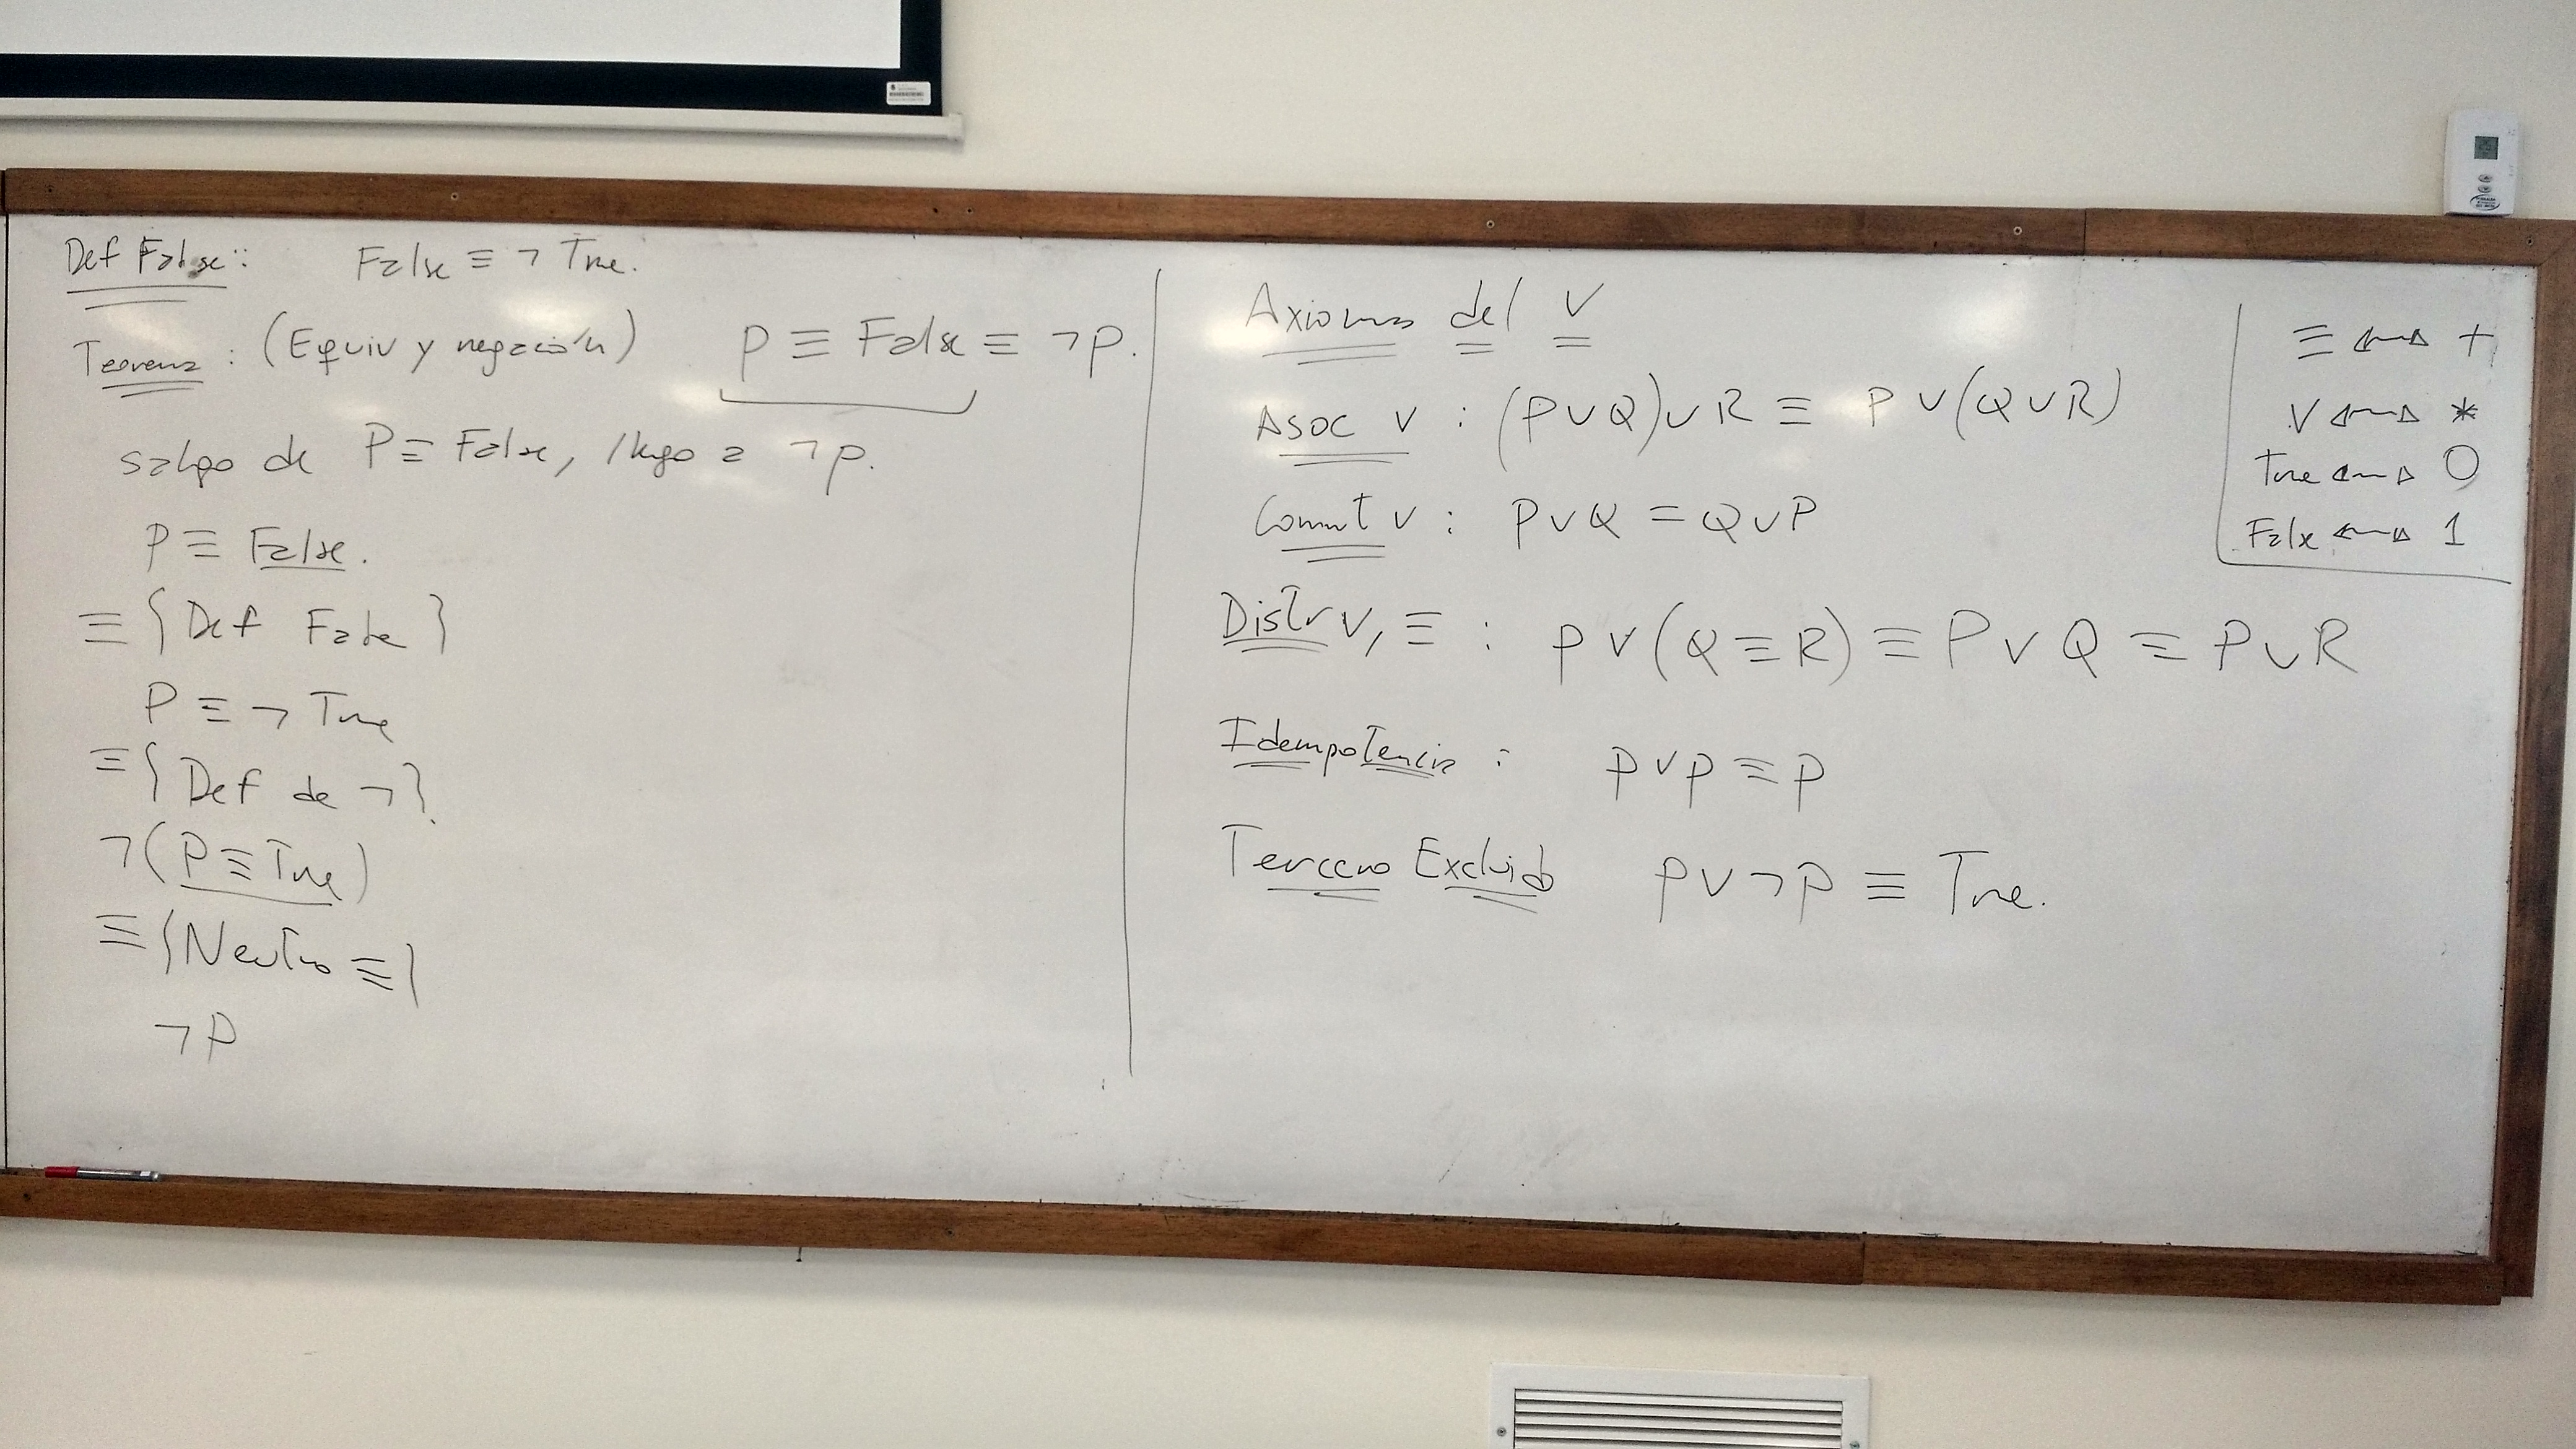 Def False: False ≡ ¬ True.
Teorema: (Equiv y negación) P ≡ False ≡ ¬P.
salgo de P ≡ False, llego a ¬P.
P ≡ False.
≡ {Def False}
P ≡ ¬ True
≡ {Def de ¬}
¬(P ≡ True)
≡ {Neutro ≡}
¬P
Axiomas del ∨
Asoc ∨ : (P∨Q)∨R ≡ P∨(Q∨R)
Conmut ∨ : P∨Q = Q∨P
Distr ∨, ≡ : P∨(Q≡R) ≡ P∨Q ≡ P∨R
Idempotencia : P∨P ≡ P
Tercero Excluido P∨¬P ≡ True.
≡ ↔ +
∨ ↔ *
True ↔ 0
False ↔ 1